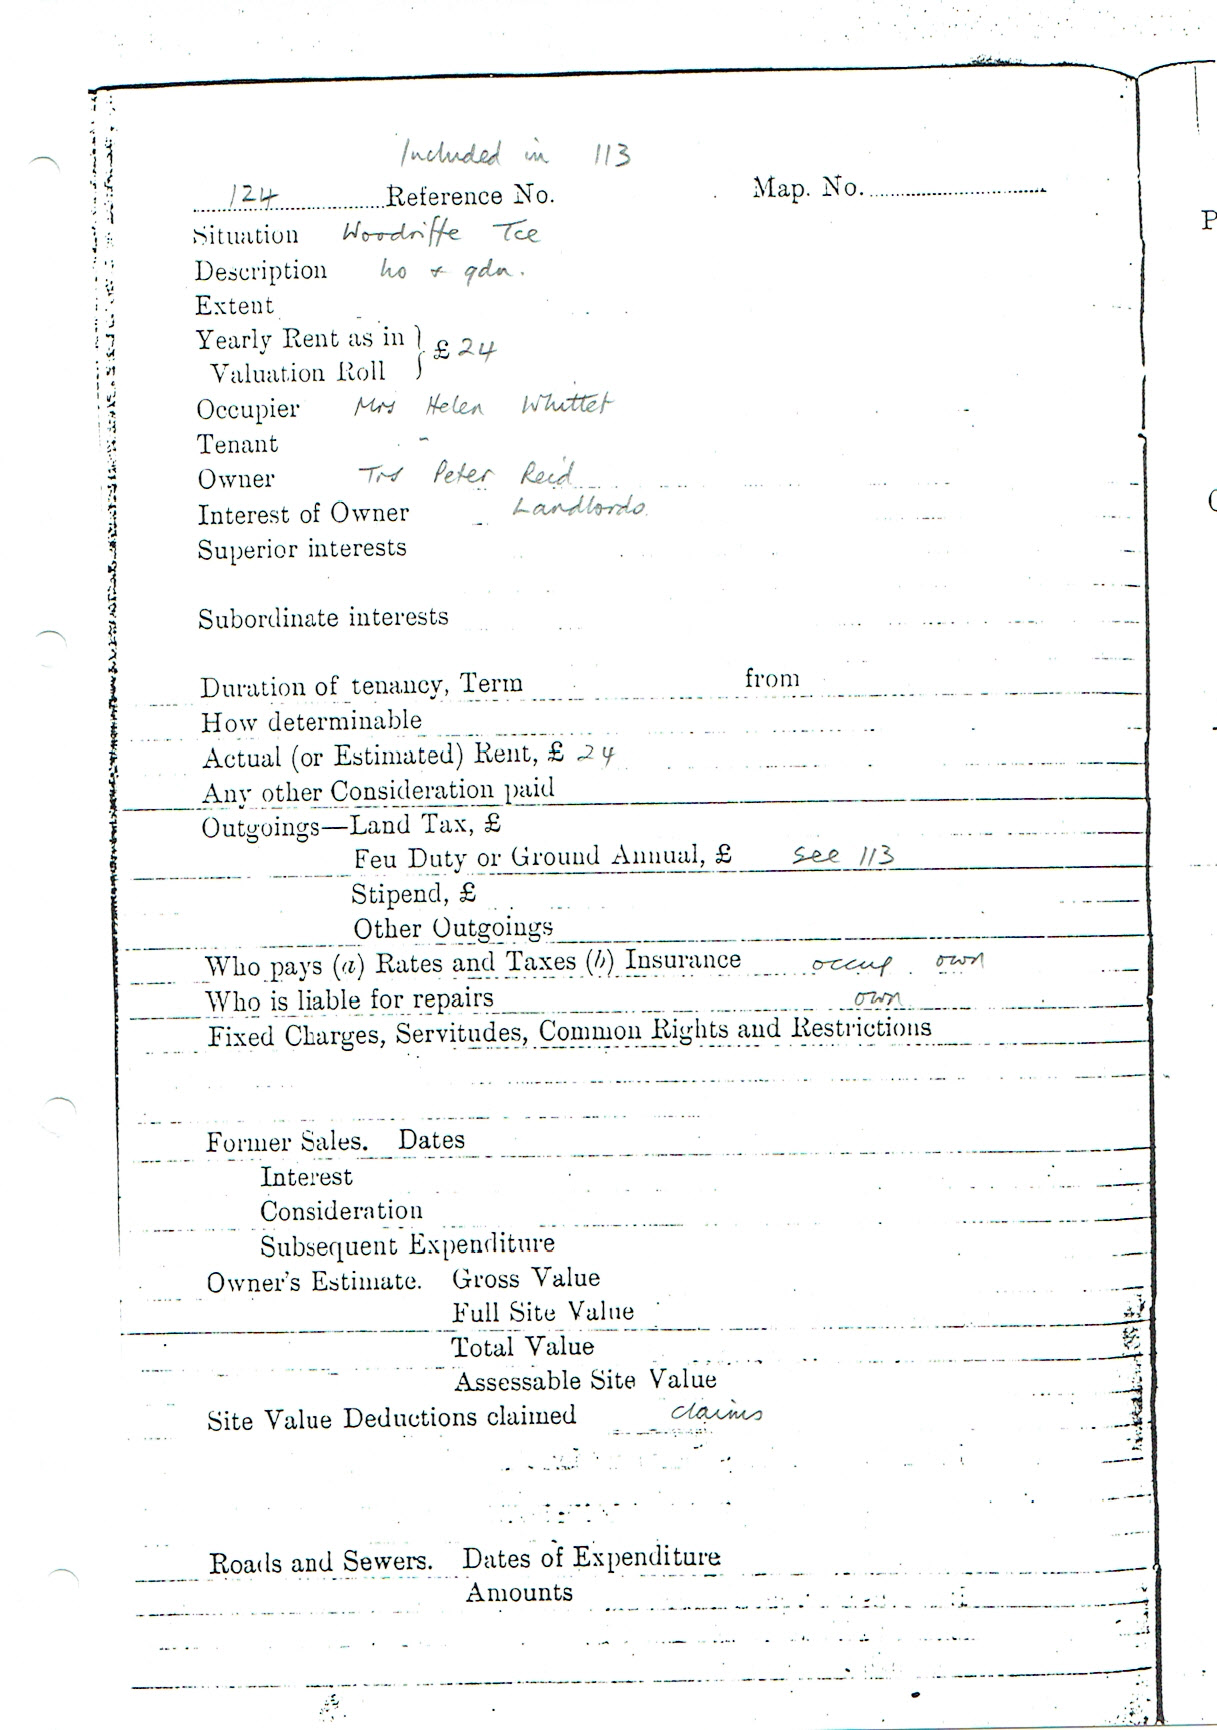 Included in 113
124 Reference No. Map. No.
Situation Woodriffe Tce
Description ho + gdn.
Extent
Yearly Rent as in
Valuation Roll } £ 24
Occupier Mrs Helen Whittet
Tenant -
Owner Trs Peter Reid
Interest of Owner Landlords
Superior interests
Subordinate interests
Duration of tenancy, Term from
How determinable
Actual (or Estimated) Rent, £ 24
Any other Consideration paid
Outgoings—Land Tax, £
Feu Duty or Ground Annual, £ see 113
Stipend, £
Other Outgoings
Who pays (a) Rates and Taxes (b) Insurance occup own
Who is liable for repairs own
Fixed Charges, Servitudes, Common Rights and Restrictions
Former Sales. Dates
Interest
Consideration
Subsequent Expenditure
Owner's Estimate. Gross Value
Full Site Value
Total Value
Assessable Site Value
Site Value Deductions claimed claims
Roads and Sewers. Dates of Expenditure
Amounts
P